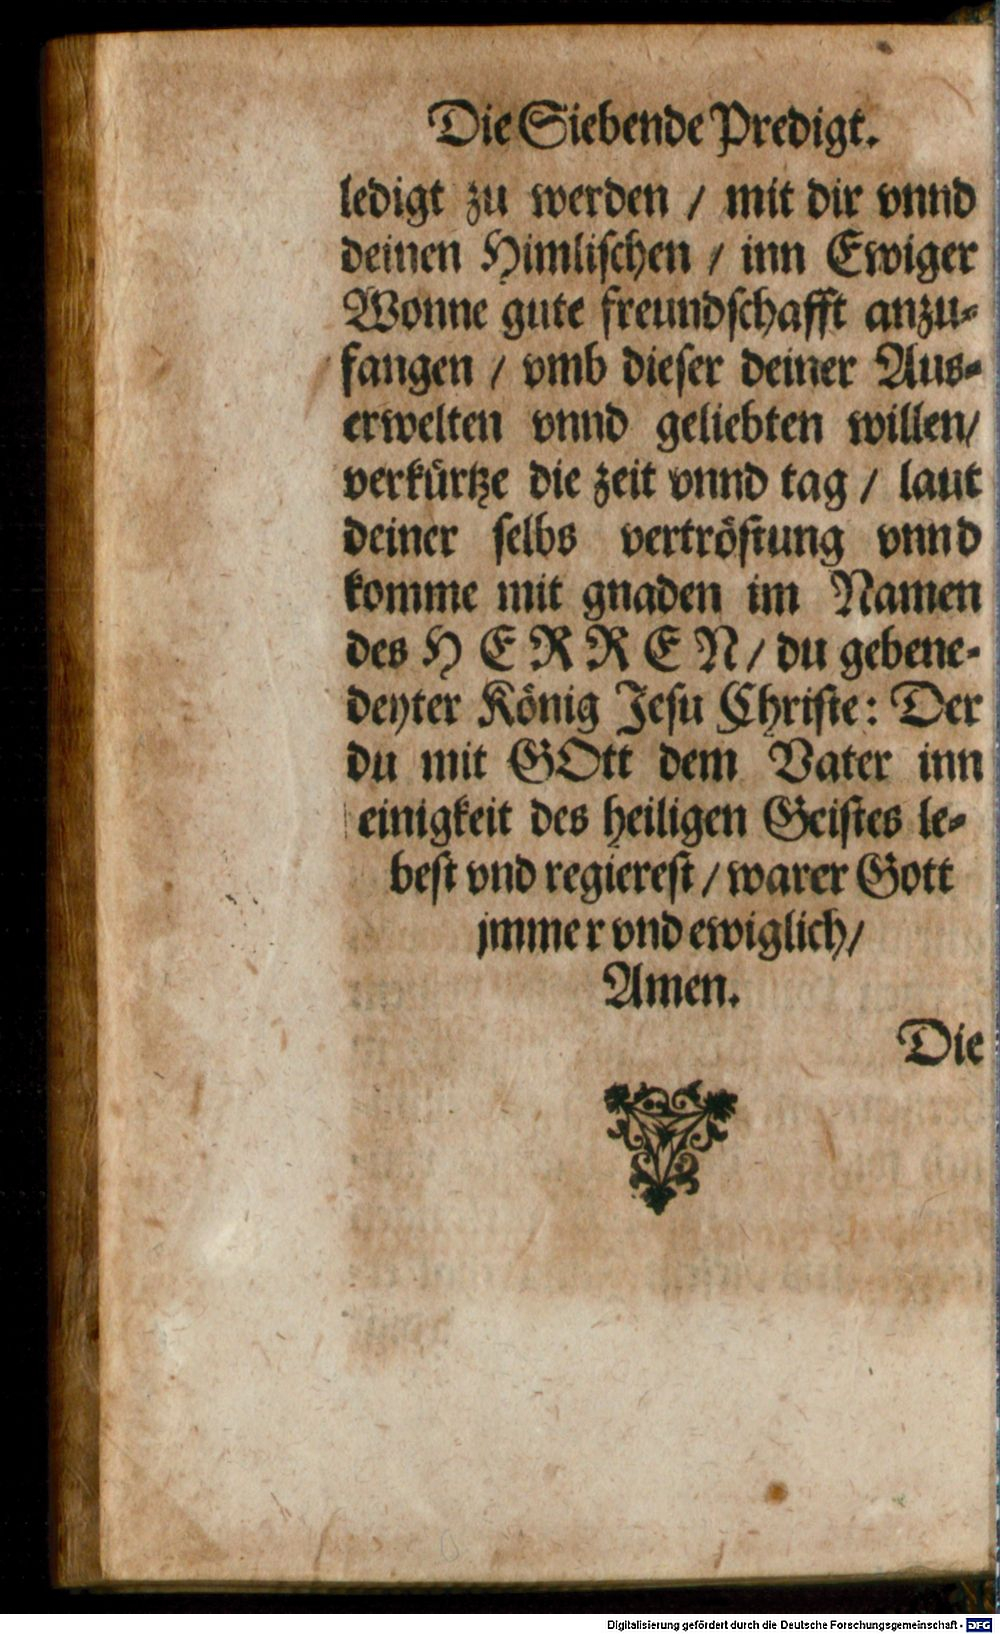 Die Siebende Predigt.
ledigt zu werden / mit dir vnnd
deinen Himlischen / inn Ewiger
Wonne gute freundschafft anzu-
fangen / vmb dieser deiner Aus-
erwelten vnnd geliebten willen/
verkürtze die zeit vnnd tag / laut
deiner selbs vertröstung vnnd
komme mit gnaden im Namen
des HERREN / du gebene-
deyter König Jesu Christe: Der
du mit GOtt dem Vater inn
einigkeit des heiligen Geistes le-
best vnd regierest / warer Gott
jmmer vnd ewiglich/
Amen.
Die
Digitalisierung gefördert durch die Deutsche Forschungsgemeinschaft - DFG